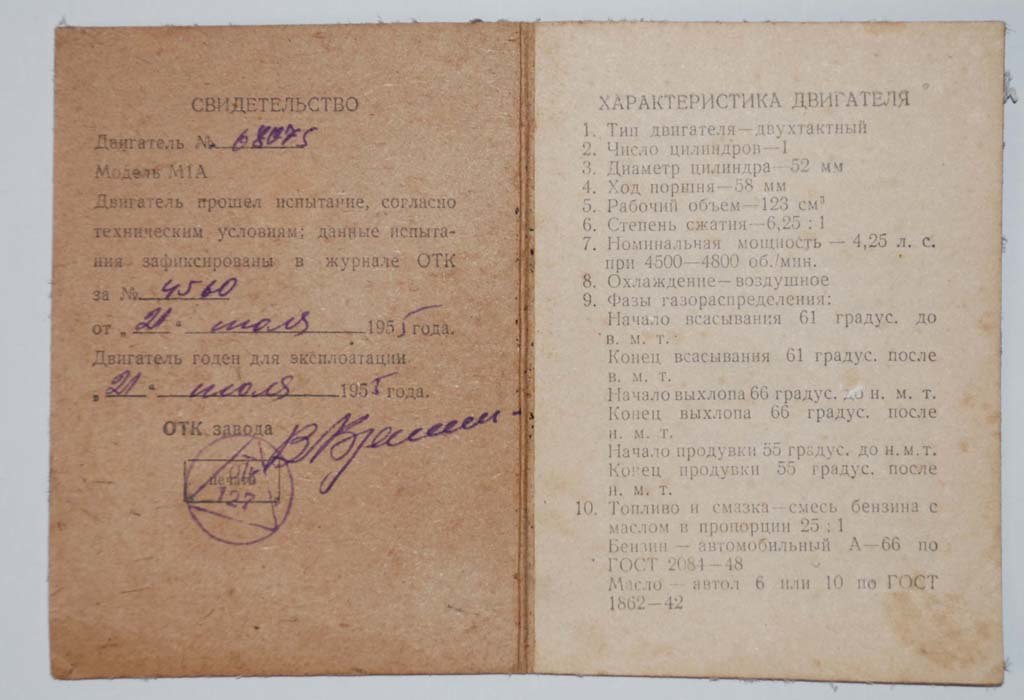 СВИДЕТЕЛЬСТВО
Двигатель № 68075
Модель М1А
Двигатель прошел испытание, согласно
техническим условиям; данные испыта-
ния зафиксированы в журнале ОТК
за № 4560
от „21“ июля 1955 года.
Двигатель годен для эксплоатации
„21“ июля 1955 года.
ОТК завода
печать
127
ХАРАКТЕРИСТИКА ДВИГАТЕЛЯ
1. Тип двигателя—двухтактный
2. Число цилиндров—1
3. Диаметр цилиндра—52 мм
4. Ход поршня—58 мм
5. Рабочий объем—123 см³
6. Степень сжатия—6,25 : 1
7. Номинальная мощность — 4,25 л. с.
при 4500—4800 об./мин.
8. Охлаждение—воздушное
9. Фазы газораспределения:
Начало всасывания 61 градус. до
в. м. т.
Конец всасывания 61 градус. после
в. м. т.
Начало выхлопа 66 градус. до н. м. т.
Конец выхлопа 66 градус. после
н. м. т.
Начало продувки 55 градус. до н. м. т.
Конец продувки 55 градус. после
н. м. т.
10. Топливо и смазка—смесь бензина с
маслом в пропорции 25 : 1
Бензин — автомобильный А—66 по
ГОСТ 2084—48
Масло — автол 6 или 10 по ГОСТ
1862—42